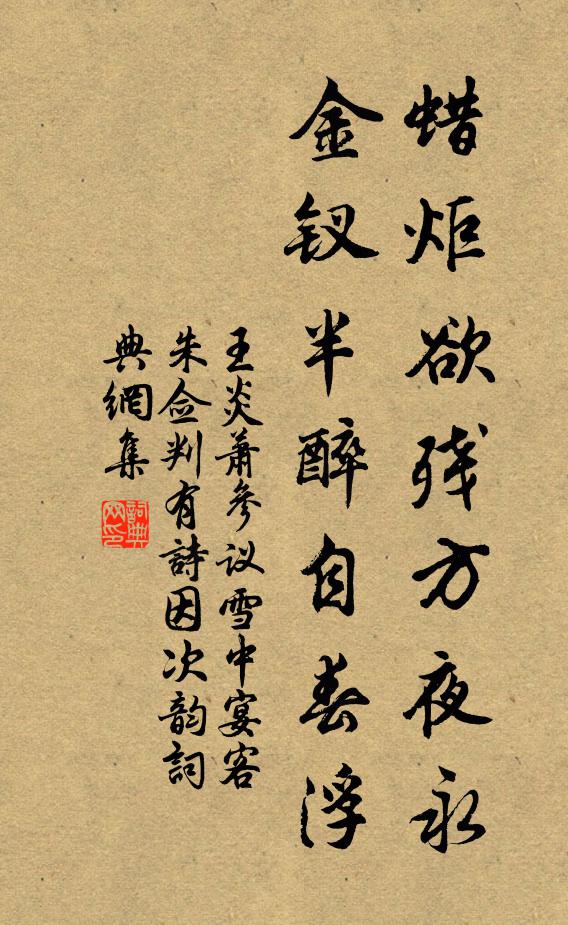 蜡炬欲残方夜永
金钗半醉自春浮
王炎萧參议雪中宴客
朱佥判有詩因次韵詞
典網集
詞典
网印